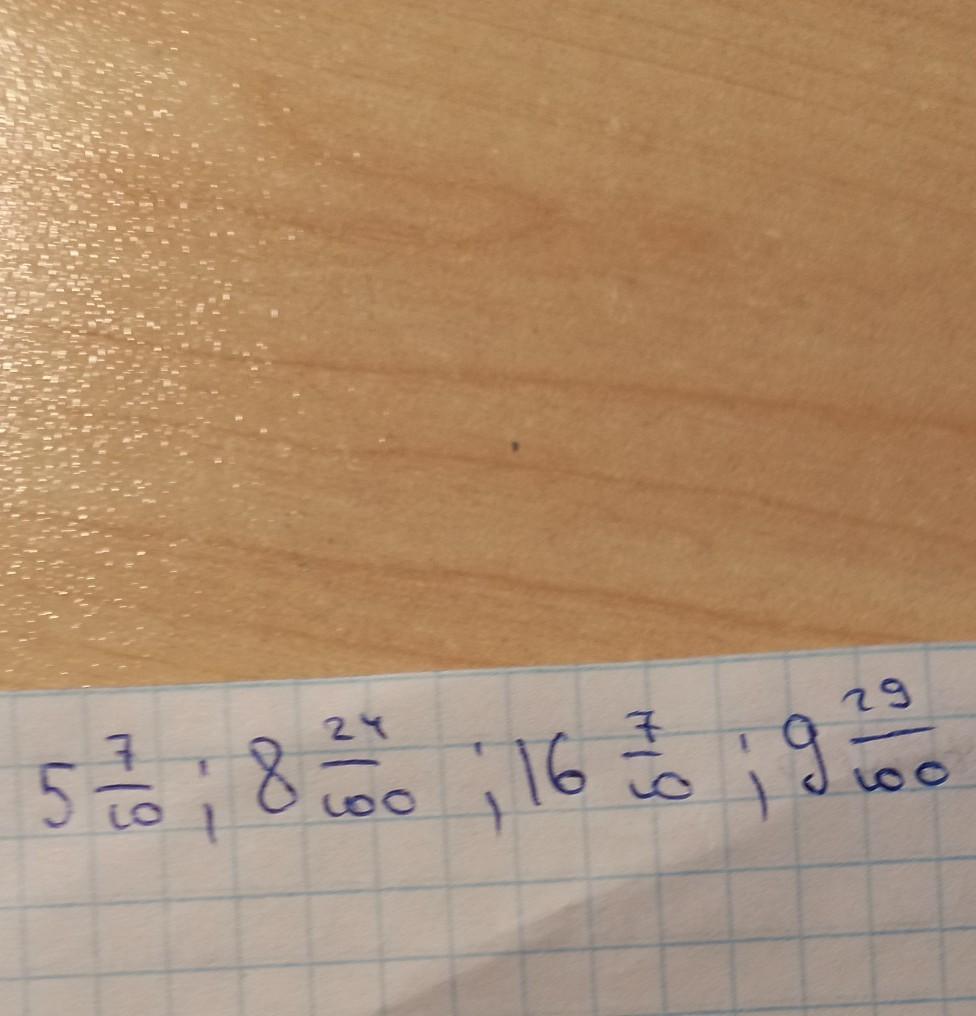 5 7/10 ; 8 24/100 ; 16 7/10 ; 9 29/100